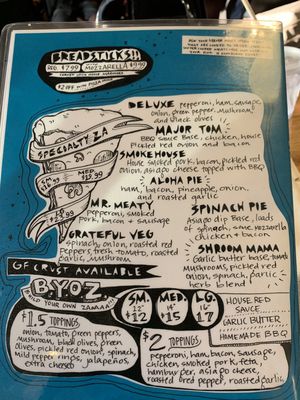 BREADSTICKS!!!
REG. $7.99 MOZZARELLA $9.99
SERVED WITH HOUSE MARINARA
$2 OFF WITH PIZZA
SPECIALTY ZA
MED.
DELUXE pepperoni, ham, sausage,
onion, green pepper, mushroom,
and black olives
MAJOR TOM
BBQ sauce base, chicken, house
pickled red onion and bacon
SMOKEHOUSE
house smoked pork, bacon, pickled red
onion, asiago cheese topped with BBQ
ALOHA PIE
ham, bacon, pineapple, onion,
and roasted garlic
MR. MEATY
pepperoni, smoked
pork, bacon + sausage
SPINACH PIE
Asiago dip base, loads
of spinach, mozzarella
chicken + bacon
GRATEFUL VEG
spinach, onion, roasted red
peppers, fresh tomato, roasted
garlic, mushroom
SHROOM MAMA
garlic butter base, tomato
mushrooms, pickled red
onion, spinach, garlic
herb blend
GF CRUST AVAILABLE
BYOZ
BUILD YOUR OWN ZAMAN
SM. MED. LG.
$12 $15 $17
HOUSE RED
SAUCE
GARLIC BUTTER
HOMEMADE BBQ
$1.5 TOPPINGS
onion, tomato, green peppers,
mushroom, black olives, green
olives, pickled red onion, spinach,
mild pepper rings, jalapeños,
extra cheese
$2 TOPPINGS
pepperoni, ham, bacon, sausage,
chicken, smoked pork, feta,
hamburger, asiago, pineapple,
roasted red pepper, roasted garlic